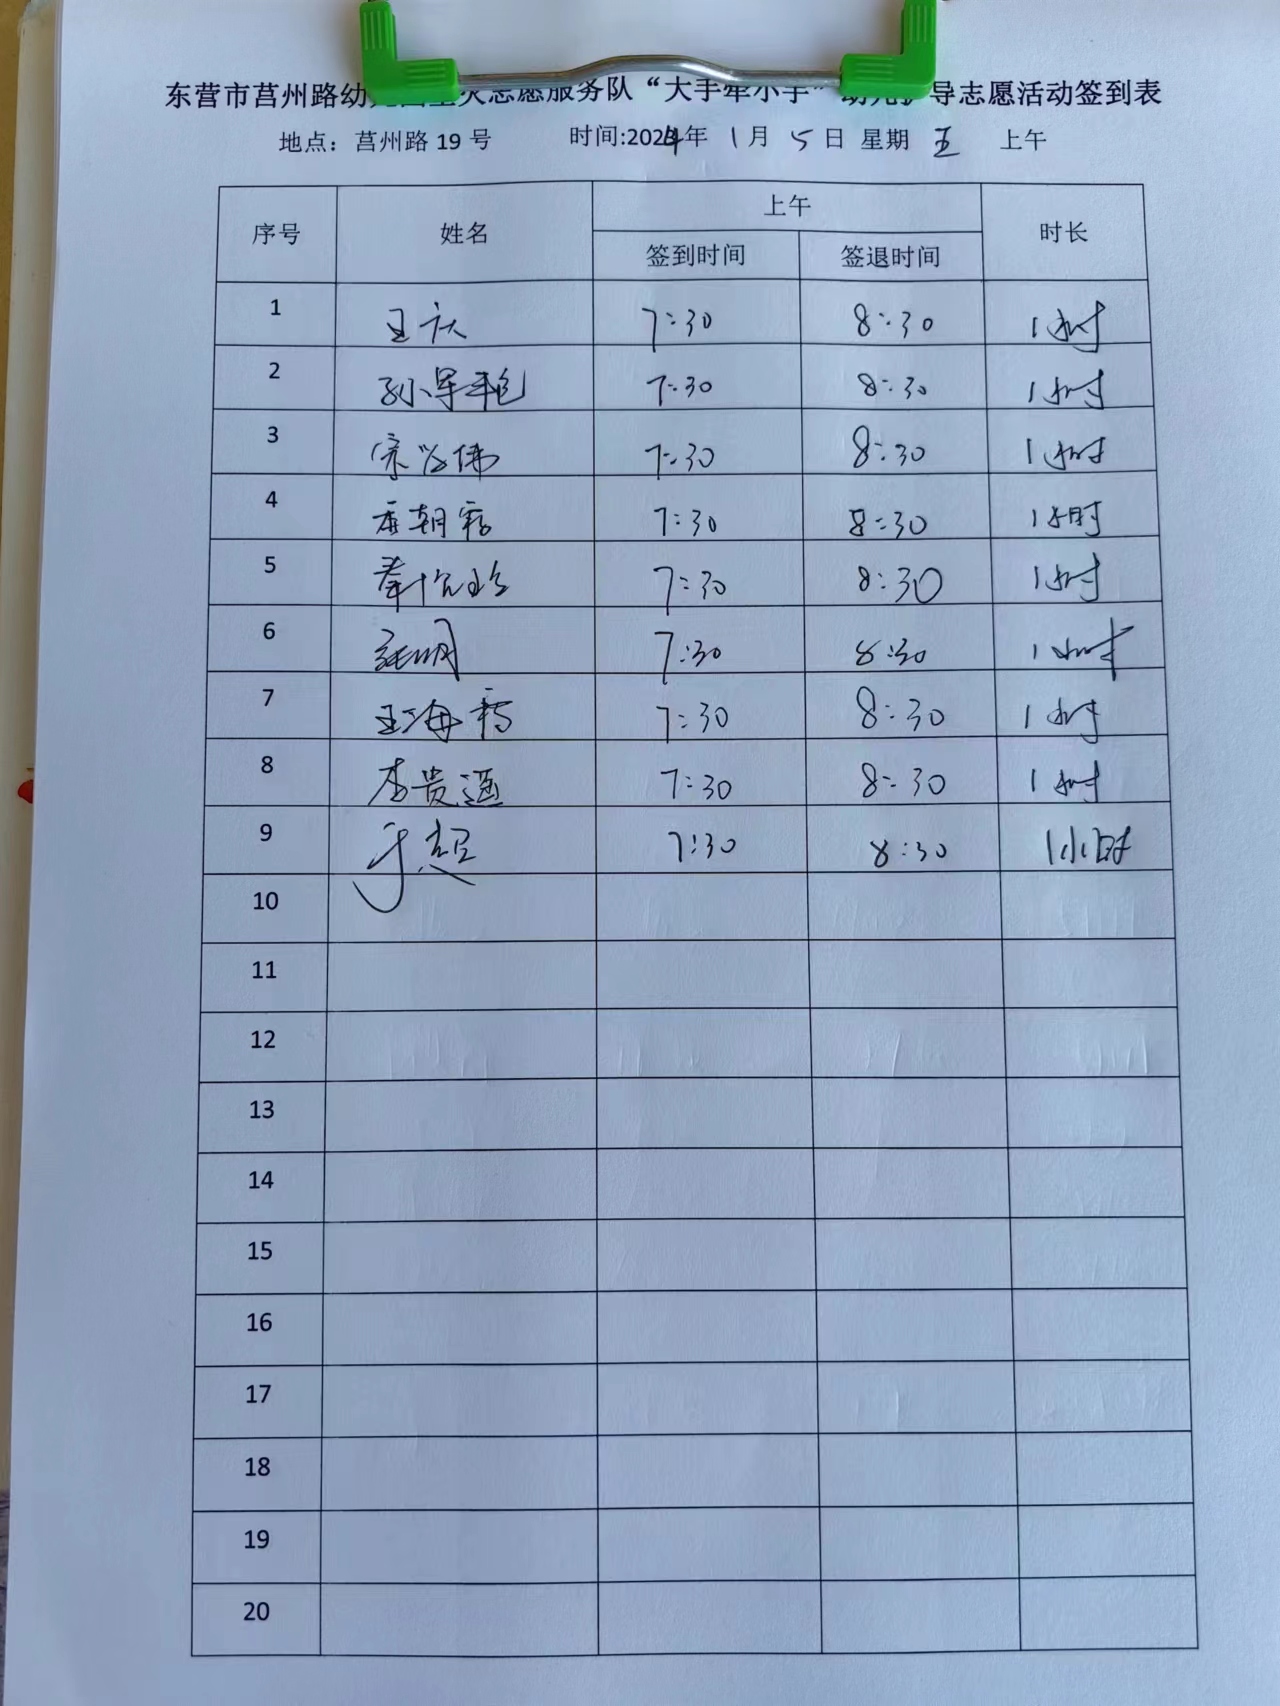 东营市莒州路幼儿园星火志愿服务队“大手牵小手”幼儿护导志愿活动签到表
地点：莒州路 19 号 时间:2024年 1月 5日 星期 五 上午
序号 姓名 上午 时长
签到时间 签退时间
1 王庆 7:30 8:30 1小时
2 孙军艳 7:30 8:30 1小时
3 7:30 8:30 1小时
4 7:30 8:30 1小时
5 7:30 8:30 1小时
6 张明 7:30 8:30 1小时
7 王海 7:30 8:30 1小时
8 李贵通 7:30 8:30 1小时
9 于超 7:30 8:30 1小时
10
11
12
13
14
15
16
17
18
19
20